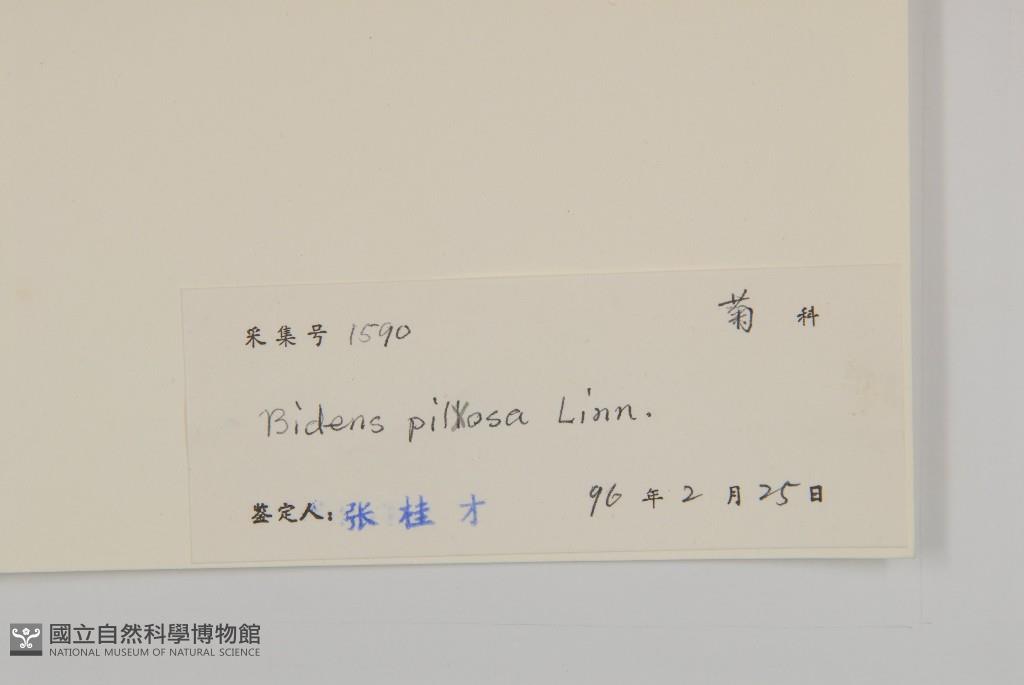 采集号 1590 菊 科
Bidens pilosa Linn.
鉴定人: 张桂才 96年2月25日
國立自然科學博物館
NATIONAL MUSEUM OF NATURAL SCIENCE